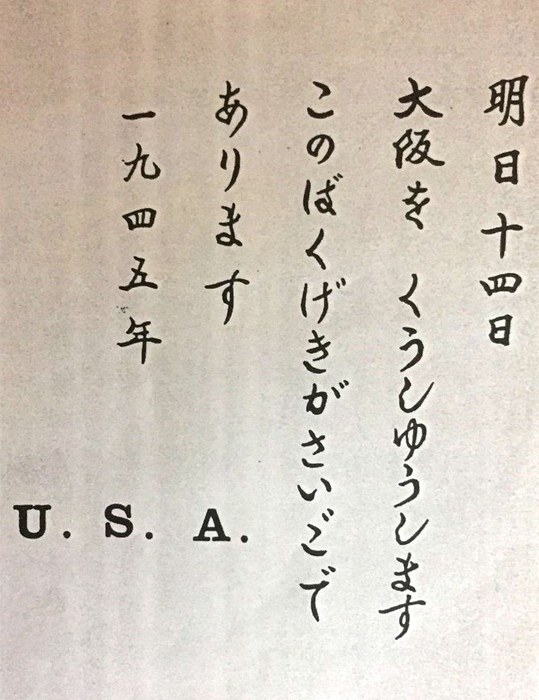 明日十四日
大阪を くうしゆうします
このばくげきがさいごで
あります
一九四五年
U. S. A.